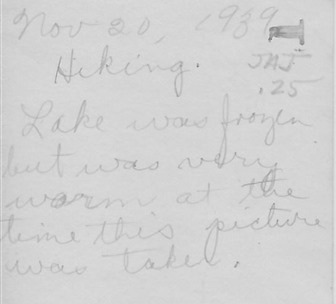 Nov 20, 1939
Hiking.
.25
Lake was frozen
but was very
warm at the
time this picture
was taken.